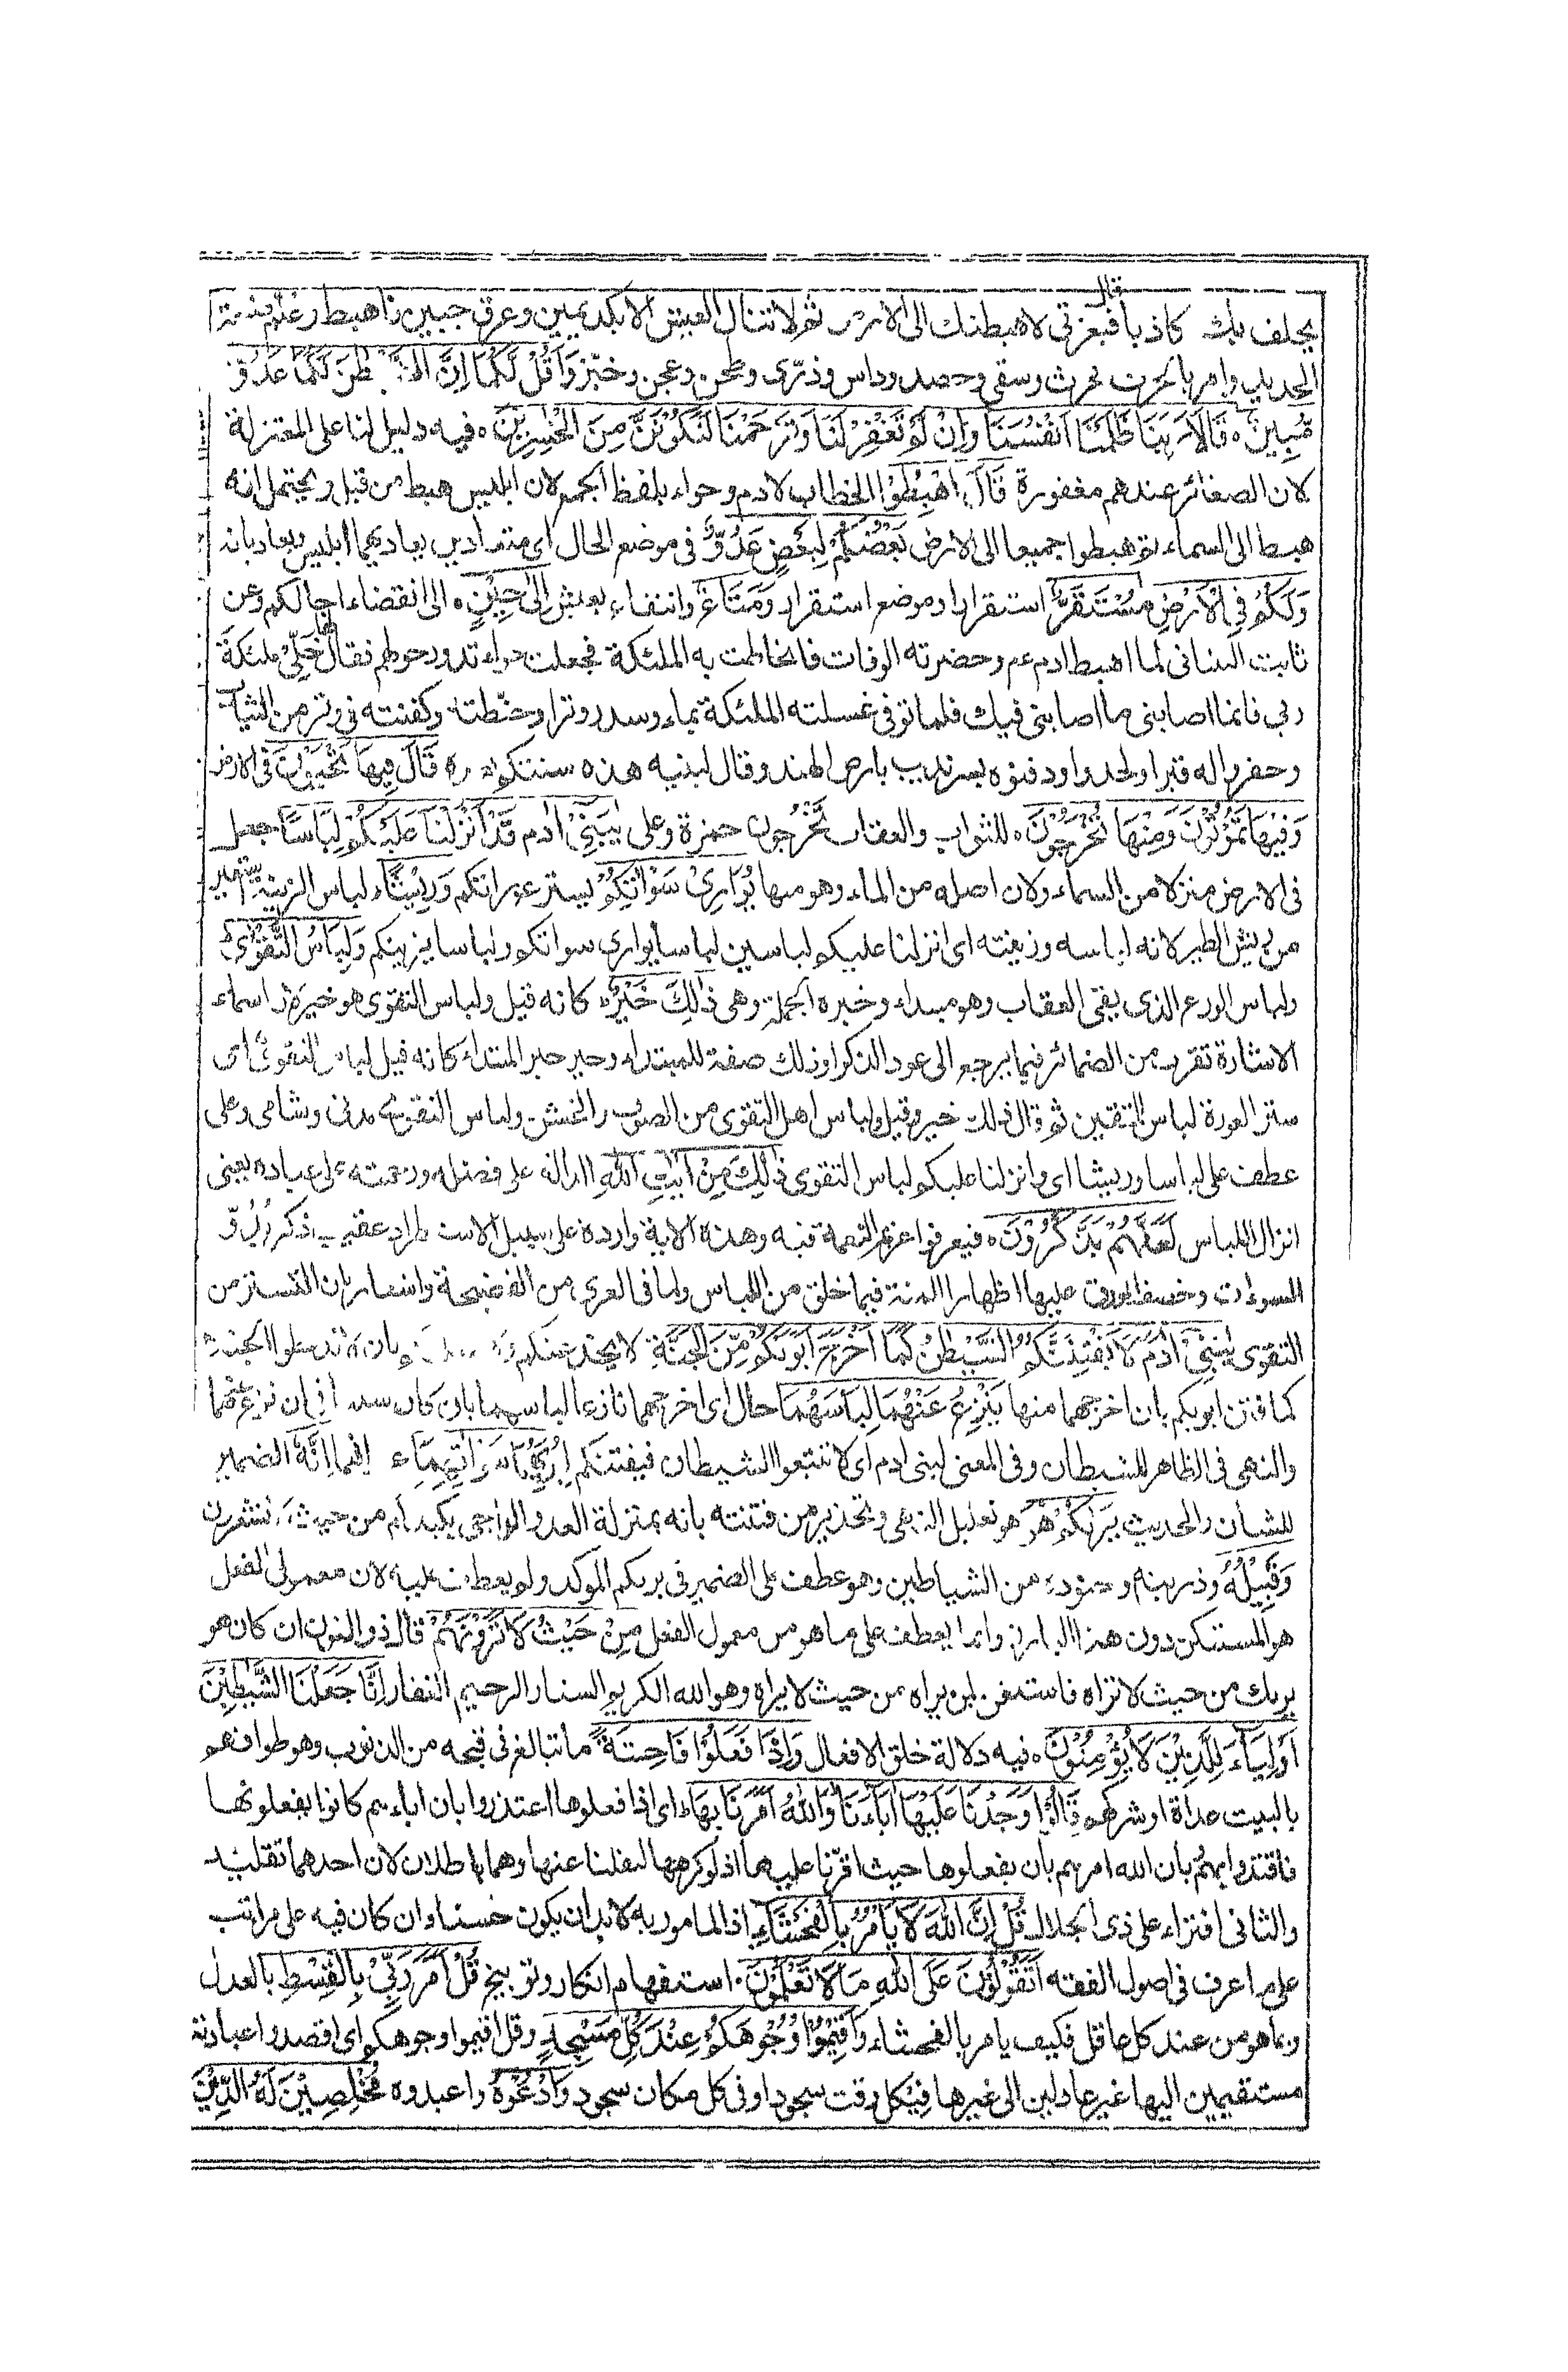 قال
يحلف بك كاذبا فبعزتي لاهبطنك الى الارض ثم لا تنال العيش الا بكد يمين وعرق جبين فاهبط وعلم صنعة
الحديد وامر بالحرث فحرث وسقى وحصد وداس وذرى وطحن وعجن وخبز وَاَقُلْ لَّكُمَا اِنَّ الشَّيْطٰنَ لَكُمَا عَدُوٌّ
مُّبِيْنٌ ه قَالَا رَبَّنَا ظَلَمْنَا اَنْفُسَنَا وَاِنْ لَّمْ تَغْفِرْ لَنَا وَتَرْحَمْنَا لَنَكُوْنَنَّ مِنَ الْخٰسِرِيْنَ ه فيه دليل لنا على المعتزلة
لان الصغائر عندهم مغفورة قَالَ اهْبِطُوْا الخطاب لادم وحواء بلفظ الجمع لان ابليس هبط من قبل ويحتمل انه
هبط الى السماء ثم هبطوا جميعا الى الارض بَعْضُكُمْ لِبَعْضٍ عَدُوٌّ في موضع الحال اى متعادين يعاديهما ابليس ويعاديانه
وَلَكُمْ فِي الْاَرْضِ مُسْتَقَرٌّ استقرار او موضع استقرار وَمَتَاعٌ وانتفاع بعيش اِلٰى حِيْنٍ ه الى انقضاء اجالكم وعن
ثابت البناني لما اهبط ادم عم وحضرته الوفات فاحاطت به الملئكة فجعلت حواء تدور حولهم فقال لها خلي ملئكة
ربي فانما اصابني ما اصابني فيك فلما توفي غسلته الملئكة بماء وسدر وترا وحنطته وكفنته في وتر من الثياب
وحفروا له قبرا ولحدوا ودفنوه بسرنديب بارض الهند وقال لبنيه هذه سنتكم بعده قَالَ فِيْهَا تَحْيَوْنَ في الارض
وَفِيْهَا تَمُوْتُوْنَ وَمِنْهَا تُخْرَجُوْنَ ه للثواب والعقاب تَخْرُجون حمزة وعلى يٰبَنِيْ اٰدَمَ قَدْ اَنْزَلْنَا عَلَيْكُمْ لِبَاسًا جعل
في الارض منزلا من السماء ولان اصله من الماء وهو منها يُوَارِيْ سَوْاٰتِكُمْ يستر عوراتكم وَرِيْشًا لباس الزينة استعير
من ريش الطير لانه لباسه وزينته اى انزلنا عليكم لباسين لباسا يواري سواتكم ولباسا يزينكم وَلِبَاسُ التَّقْوٰى
ولباس الورع الذى يقي العقاب وهو مبتداء وخبره الجملة وهى ذٰلِكَ خَيْرٌ كانه قيل ولباس التقوى هو خير لان اسماء
الاشارة تقرب من الضمائر فيما يرجع الى عود الذكر او ذلك صفة للمبتداء وخير خبر المبتداء كانه قيل لباس التقوى اى
ستر العورة لباس المتقين ثم قال ذلك خير وقيل ولباس اهل التقوى من الصوف والخشن ولباس التقوى مدني وشامى وعلى
عطف على لباسا وريشا اى وانزلنا عليكم لباس التقوى ذٰلِكَ مِنْ اٰيٰتِ اللّٰهِ الدالة على فضله ورحمته على عباده يعنى
انزال اللباس لَعَلَّهُمْ يَذَّكَّرُوْنَ ه فيعرفوا عظيم النعمة فيه وهذه الاية واردة على سبيل الاستطراد عقيب ذكر بُدُوّ
السوءات وخصف الورق عليها اظهارا للمنة فيما خلق من اللباس ولما في العرى من الفضيحة واشعارا بان التستر من
التقوى يٰبَنِيْ اٰدَمَ لَا يَفْتِنَنَّكُمُ الشَّيْطٰنُ كَمَا اَخْرَجَ اَبَوَيْكُمْ مِّنَ الْجَنَّةِ لا يخدعنكم بان لا تدخلوا الجنة
كما فتن ابويكم بان اخرجهما منها يَنْزِعُ عَنْهُمَا لِبَاسَهُمَا حال اى اخرجهما نازعا لباسهما بان كان سببا في ان نزع عنهما
والنهى في الظاهر للشيطان وفى المعنى لبنى ادم اى لا تتبعوا الشيطان فيفتنكم لِيُرِيَهُمَا سَوْاٰتِهِمَا اِنَّهٗ الضمير
للشأن والحديث يَرٰىكُمْ هُوَ هو تعليل النهى وتحذير من فتنته بانه بمنزلة العدو المداجى يكيدكم من حيث لا تشعرون
وَقَبِيْلُهٗ وذريته او جنوده من الشياطين وهو عطف على الضمير في يريكم الموكد ولم يعطف عليه لان معمول الفعل
هو المستكن دون هذا البارز وانما يعطف على ما هو من معمول الفعل مِنْ حَيْثُ لَا تَرَوْنَهُمْ قال ذو النون ان كان هو
يريك من حيث لا تراه فاستعن بمن يراه من حيث لا يراه وهو الله الكريم الستار الرحيم الغفار اِنَّا جَعَلْنَا الشَّيٰطِيْنَ
اَوْلِيَآءَ لِلَّذِيْنَ لَا يُؤْمِنُوْنَ ه فيه دلالة خلق الافعال وَاِذَا فَعَلُوْا فَاحِشَةً ما تبالغ في قبحه من الذنوب وهو طوافهم
بالبيت عراة وشركهم قَالُوْا وَجَدْنَا عَلَيْهَا اٰبَآءَنَا وَاللّٰهُ اَمَرَنَا بِهَا اى اذا فعلوها اعتذروا بان اباءهم كانوا يفعلونها
فاقتدوا بهم وبان الله امرهم بان يفعلوها حيث اقرنا عليها اذ لو كرهها لنقلنا عنها وهما باطلان لان احدهما تقليد
والثانى افتراء على ذى الجلال قُلْ اِنَّ اللّٰهَ لَا يَاْمُرُ بِالْفَحْشَآءِ اذ المامور به لا بد ان يكون حسنا وان كان فيه على مراتب
على ما عرف في اصول الفقه اَتَقُوْلُوْنَ عَلَى اللّٰهِ مَا لَا تَعْلَمُوْنَ ه استفهام انكار وتوبيخ قُلْ اَمَرَ رَبِّيْ بِالْقِسْطِ بالعدل
وبما هو من عند كل عاقل فكيف يامر بالفحشاء وَاَقِيْمُوْا وُجُوْهَكُمْ عِنْدَ كُلِّ مَسْجِدٍ وقل اقيموا وجوهكم اى اقصدوا عبادته
مستقيمين اليها غير عادلين الى غيرها في كل وقت سجود او في كل مكان سجود وَادْعُوْهُ واعبدوه مُخْلِصِيْنَ لَهُ الدِّيْنَ